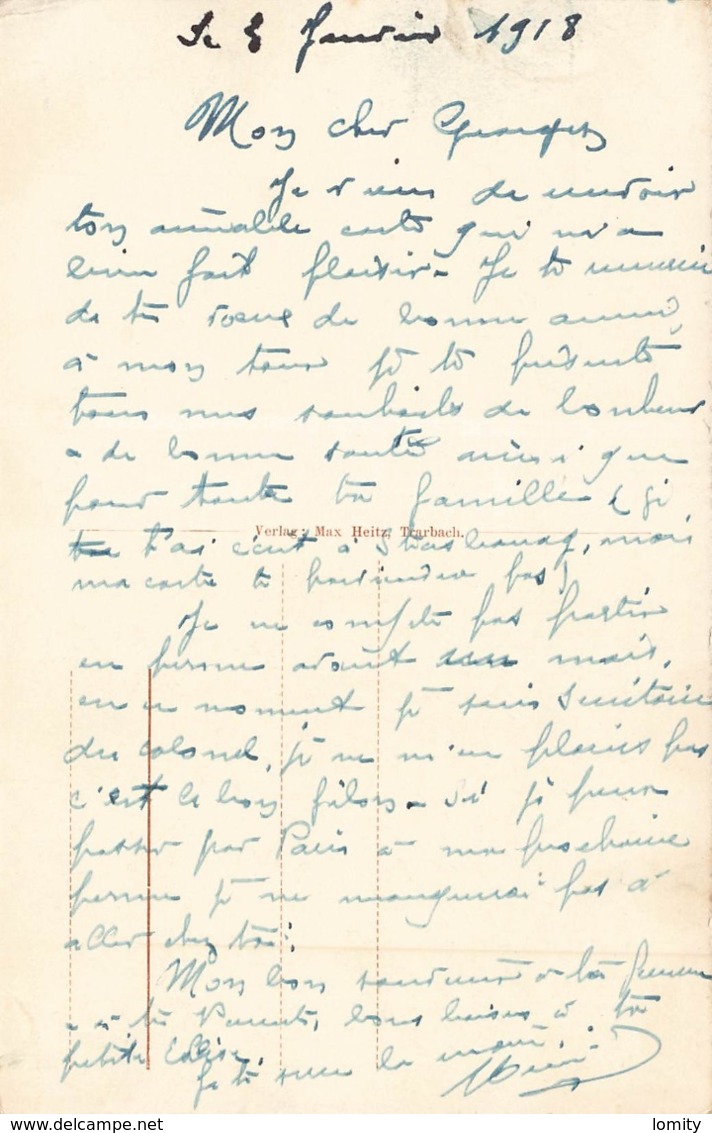 Le 8 Janvier 1918
Mon cher Georges
Je viens de recevoir
ton aimable carte qui m'a
bien fait plaisir. Je te remercie
de tes voeux de bonne année,
à mon tour je te présente
tous mes souhaits de bonheur
& de bonne santé ainsi que
pour toute ta famille (Je
t'ai écrit à Strasbourg, mais
Verlag: Max Heitz, Trarbach.
ma carte te parviendra pas)
Je ne compte pas partir
en perme avant un mois,
en ce moment je suis secrétaire
du colonel, je ne m'en plains pas
c'est le bon filon. Si je peux
passer par Paris à ma prochaine
perme je ne manquerai pas d'
aller chez toi.
Mon bon souvenir à ta femme
& à tes Parents, bons baisers à ta
petite
Je te serre la main.
lomity